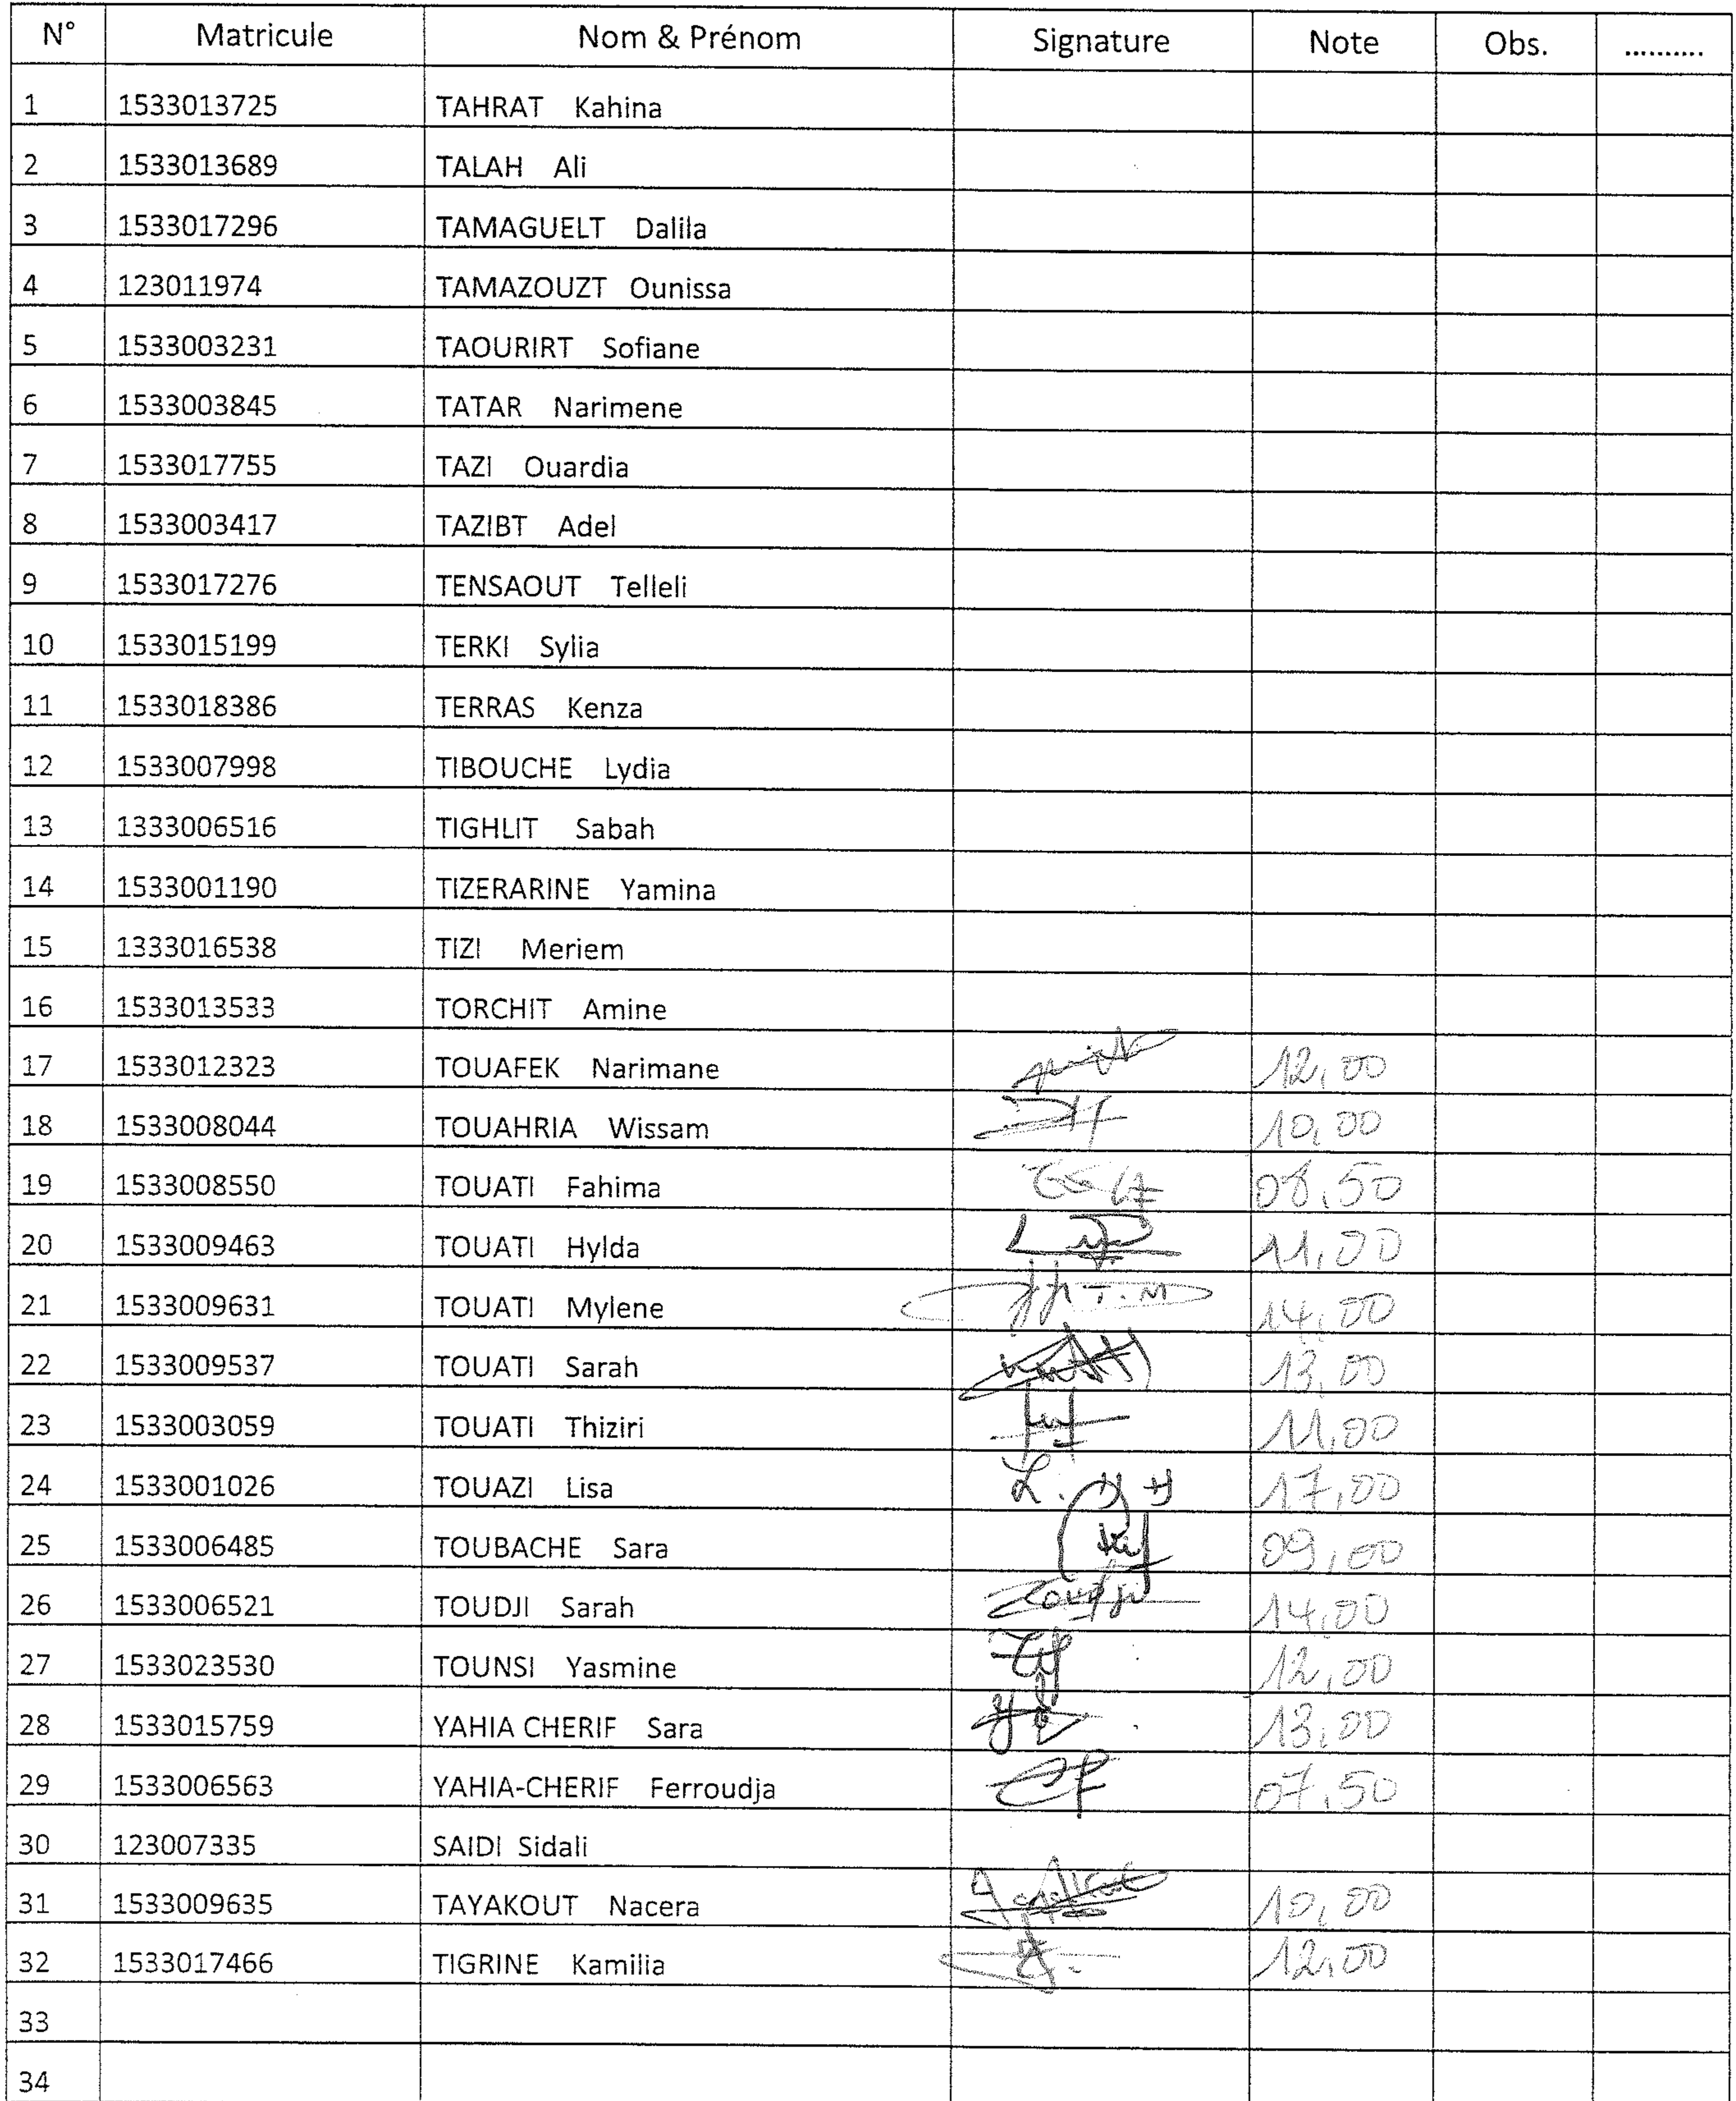 N° Matricule Nom & Prénom Signature Note Obs. ..........
1 1533013725 TAHRAT Kahina
2 1533013689 TALAH Ali
3 1533017296 TAMAGUELT Dalila
4 123011974 TAMAZOUZT Ounissa
5 1533003231 TAOURIRT Sofiane
6 1533003845 TATAR Narimene
7 1533017755 TAZI Ouardia
8 1533003417 TAZIBT Adel
9 1533017276 TENSAOUT Telleli
10 1533015199 TERKI Sylia
11 1533018386 TERRAS Kenza
12 1533007998 TIBOUCHE Lydia
13 1333006516 TIGHLIT Sabah
14 1533001190 TIZERARINE Yamina
15 1333016538 TIZI Meriem
16 1533013533 TORCHIT Amine
17 1533012323 TOUAFEK Narimane 12,00
18 1533008044 TOUAHRIA Wissam 10,00
19 1533008550 TOUATI Fahima 08,50
20 1533009463 TOUATI Hylda 11,00
21 1533009631 TOUATI Mylene T.M 14,00
22 1533009537 TOUATI Sarah 13,00
23 1533003059 TOUATI Thiziri 11,00
24 1533001026 TOUAZI Lisa L. 17,00
25 1533006485 TOUBACHE Sara 09,00
26 1533006521 TOUDJI Sarah 14,00
27 1533023530 TOUNSI Yasmine 12,00
28 1533015759 YAHIA CHERIF Sara 13,00
29 1533006563 YAHIA-CHERIF Ferroudja 07,50
30 123007335 SAIDI Sidali
31 1533009635 TAYAKOUT Nacera 10,00
32 1533017466 TIGRINE Kamilia 12,00
33
34